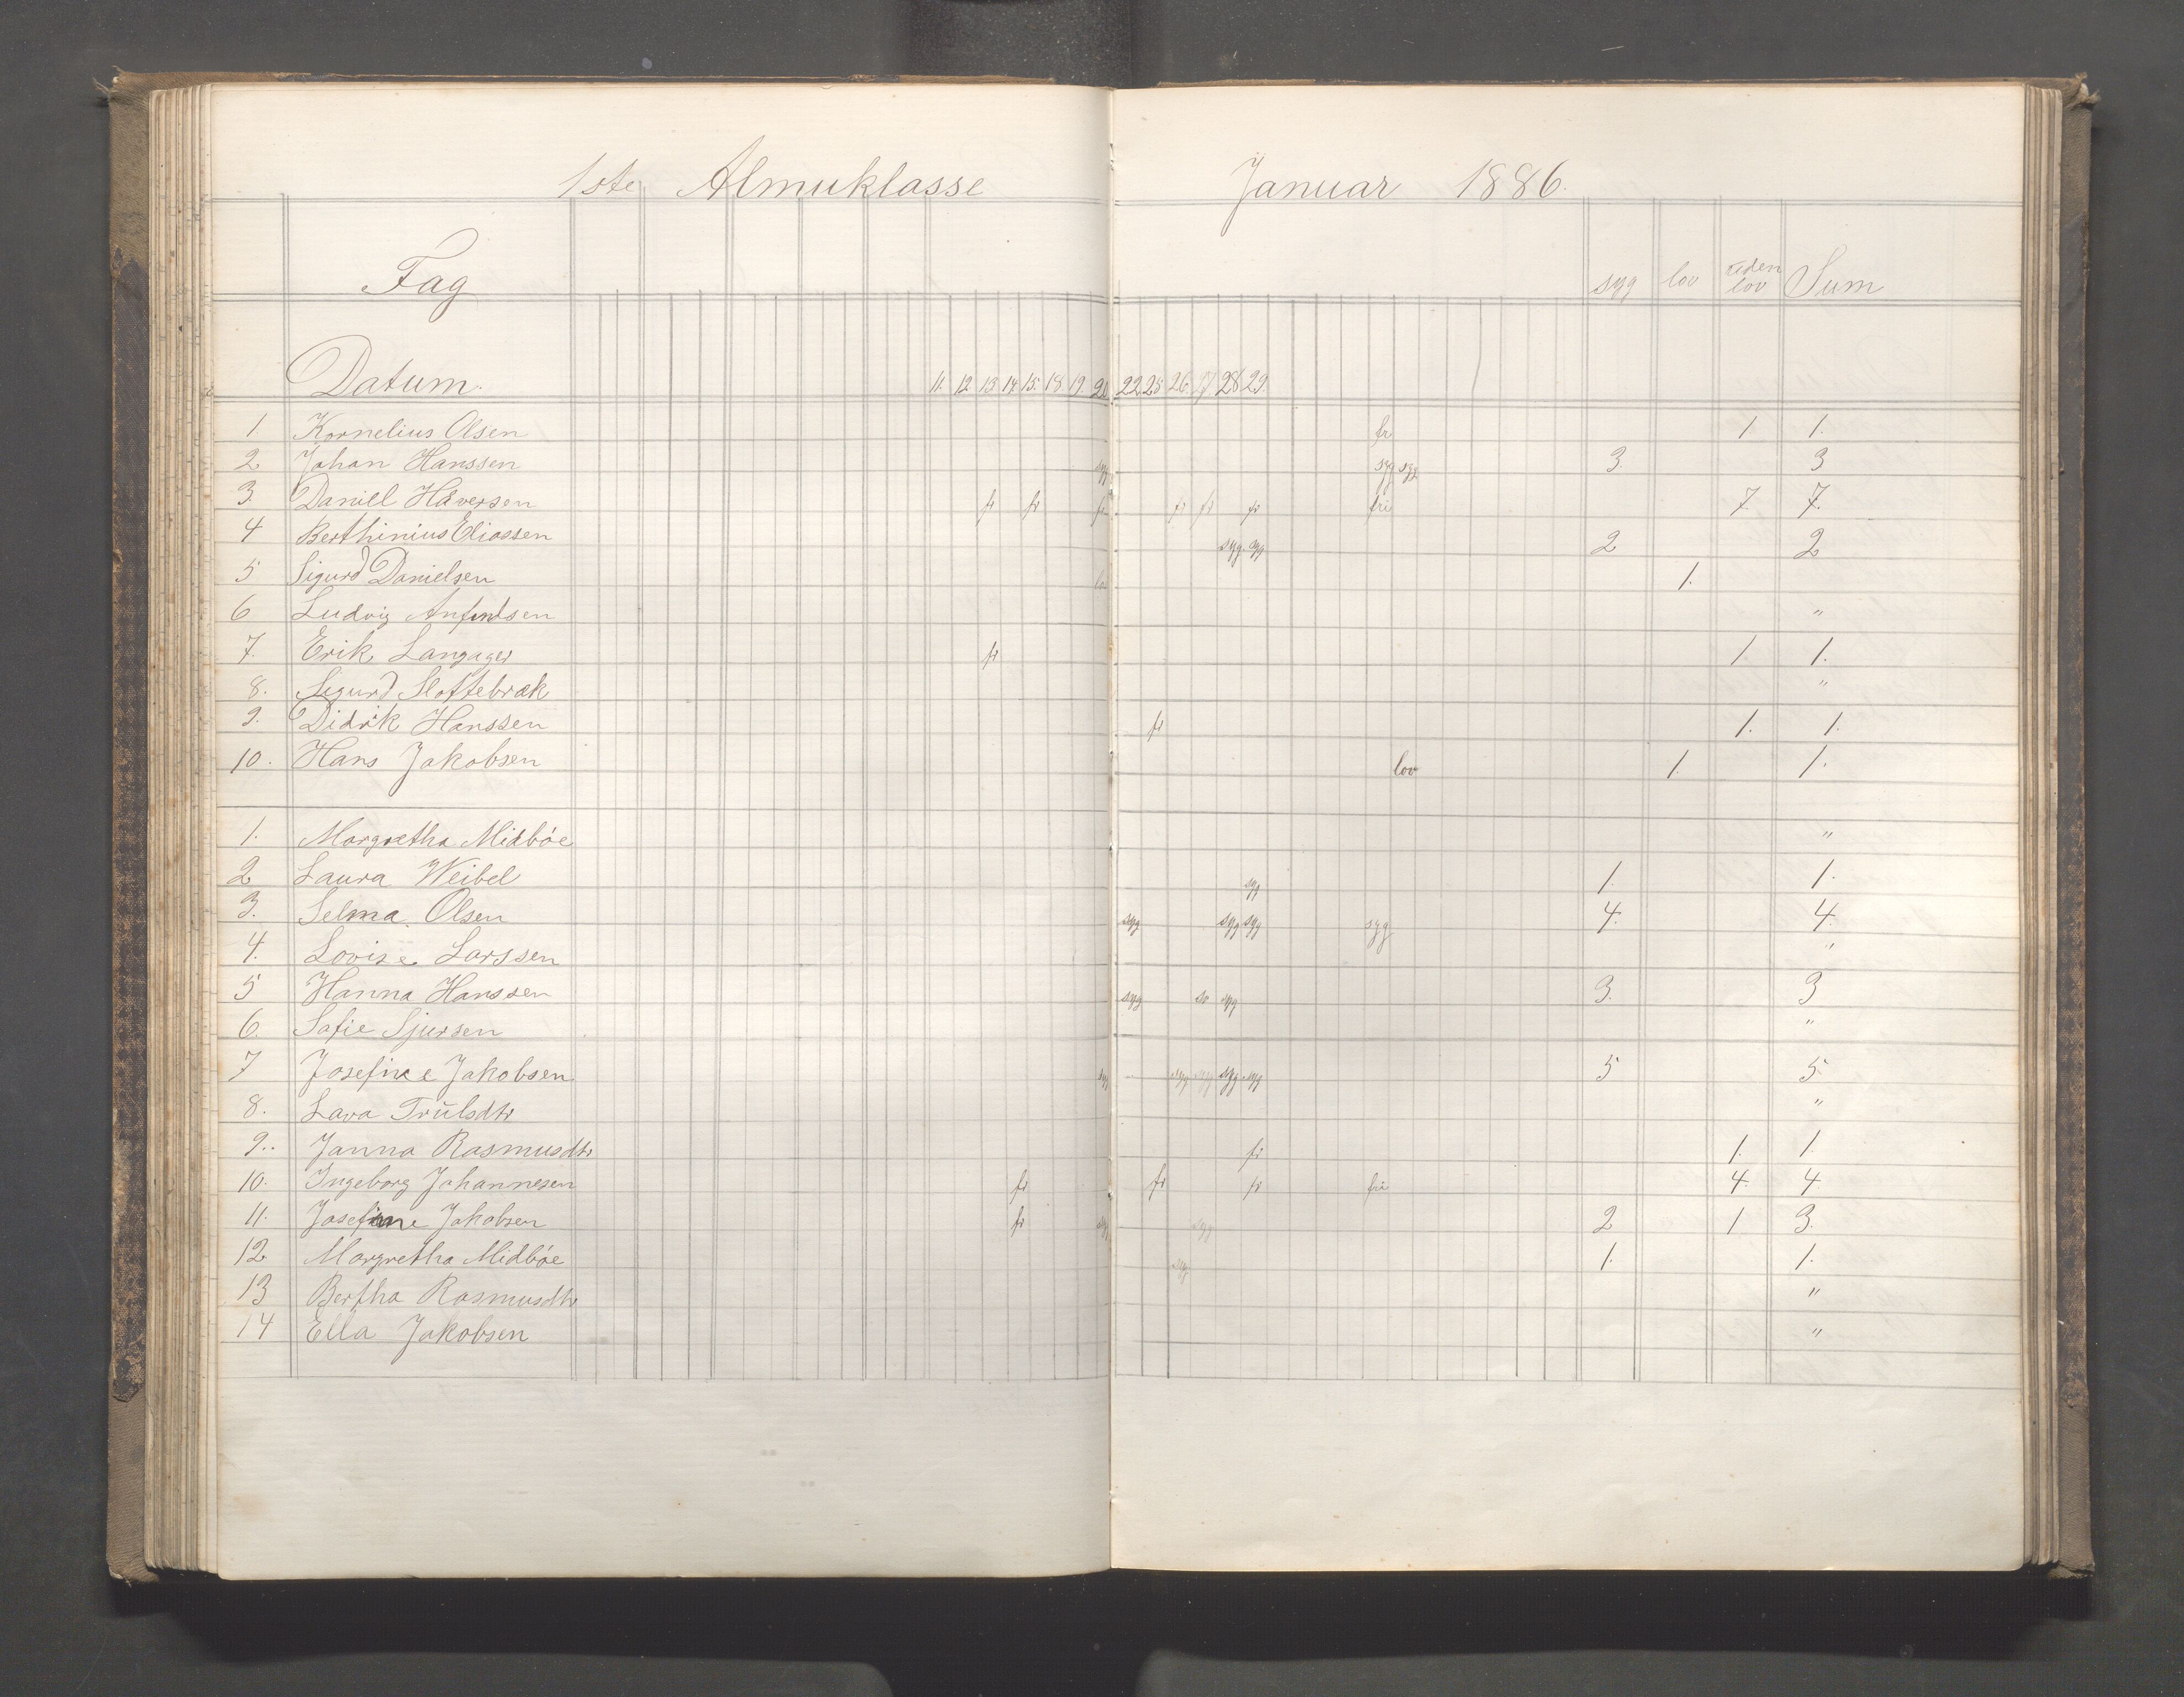 1ste Almuklasse Januar 1886.
Fag syg lov uden lov Sum
Datum. 11. 12 13 14. 15. 18. 19. 22 25 26. 27. 28 29.
1. Kornelius Olsen fr 1. 1.
2 Johan Hanssen syg syg syg 3. 3
3. Daniel Håversen fr fr fr fr fr fr fri 7. 7.
4 Berthinius Eliassen syg. syg 2 2
5 Sigurd Danielsen lov 1.
6 Ludvig Anfindsen "
7. Erik Langager fr 1 1.
8. Sigurd Slottebræk "
9. Didrik Hanssen fr 1. 1.
10. Hans Jakobsen lov 1. 1.
1. Margretha Midbøe "
2 Laura Weibel syg 1. 1.
3. Selma Olsen syg syg syg syg 4. 4.
4. Lovise Larssen "
5 Hanna Hanssen syg syg 3. 3
6. Safie Sjursen "
7 Josefine Jakobsen syg syg syg syg syg 5 5.
8. Lava Trulsdtr "
9.. Janna Rasmusdtr fr 1. 1.
10. Ingeborg Johannesen fr fr fr fri 4. 4
11. Josefine Jakobsen fr syg syg 2 1 3.
12 Margretha Midbøe syg 1. 1.
13 Bertha Rasmusdtr "
14 Ella Jakobsen "